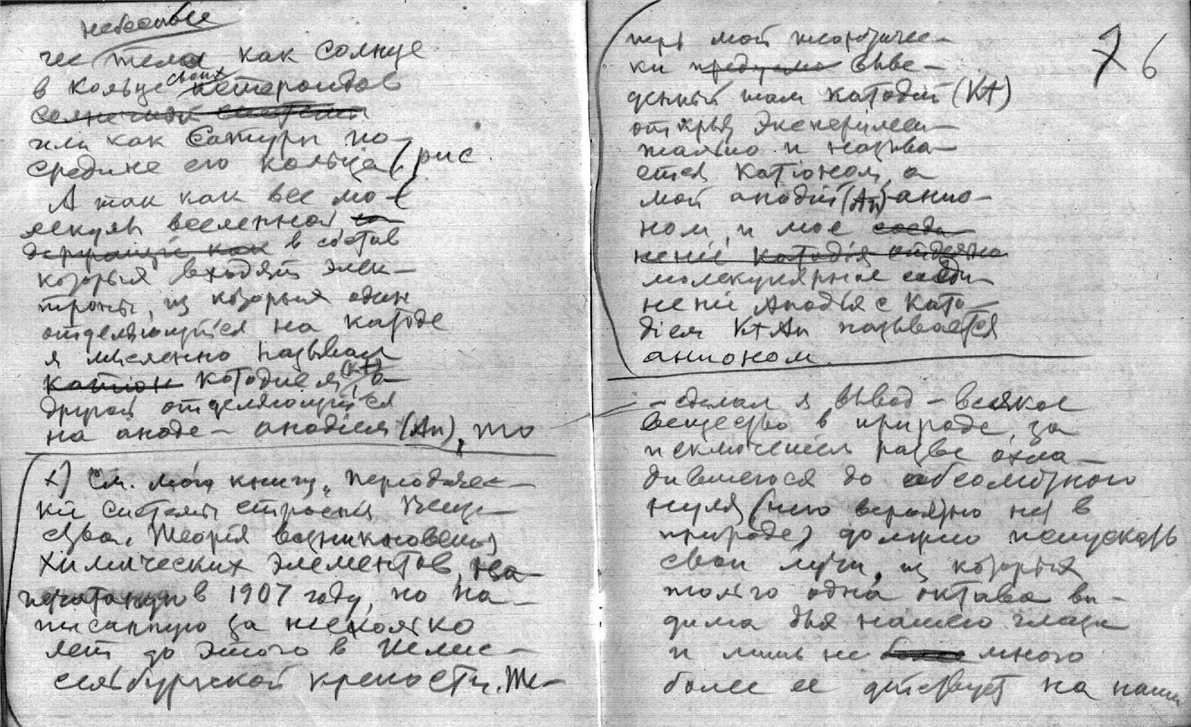 небесные
че тела как Солнце
в Кольце своих астероидов
солнечной системы
или как Сатурн по-
средине его кольца (рис.
А так как все мо-
лекулы вселенной
в состав
которыя входят элек-
троны, из которых один
отделяющийся на катоде
я мысленно называл
катион катодием (Kt) а
другой отделяющийся
на аноде – анодием (An), то
x) См. мою книгу „Периодичес-
кия системы строения Веще-
ства. Теория возникновения
Химических Элементов, на-
печатанную в 1907 году, но на-
писанную за несколько
лет до этого в Шлис-
сельбургской крепости. Те-
76
перь мой теоретичес-
ки выве-
денный там Катодий (Kt)
открыт эксперимен-
тально и называ-
ется Катионом, а
мой анодий (An) анио-
ном, и мое соеди-
нение Катодия
молекулярное соеди-
нение Анодия с Като-
дием KtAn называется
анионом.
– сделал я вывод – всякое
вещество в природе, за
исключением разве охла-
дившегося до абсолютного
нуля (чего вероятно нет в
природе) должно испускать
свои лучи, из которых
только одна октава ви-
дима для нашего глаза
и лишь не много
более ее действует на наши